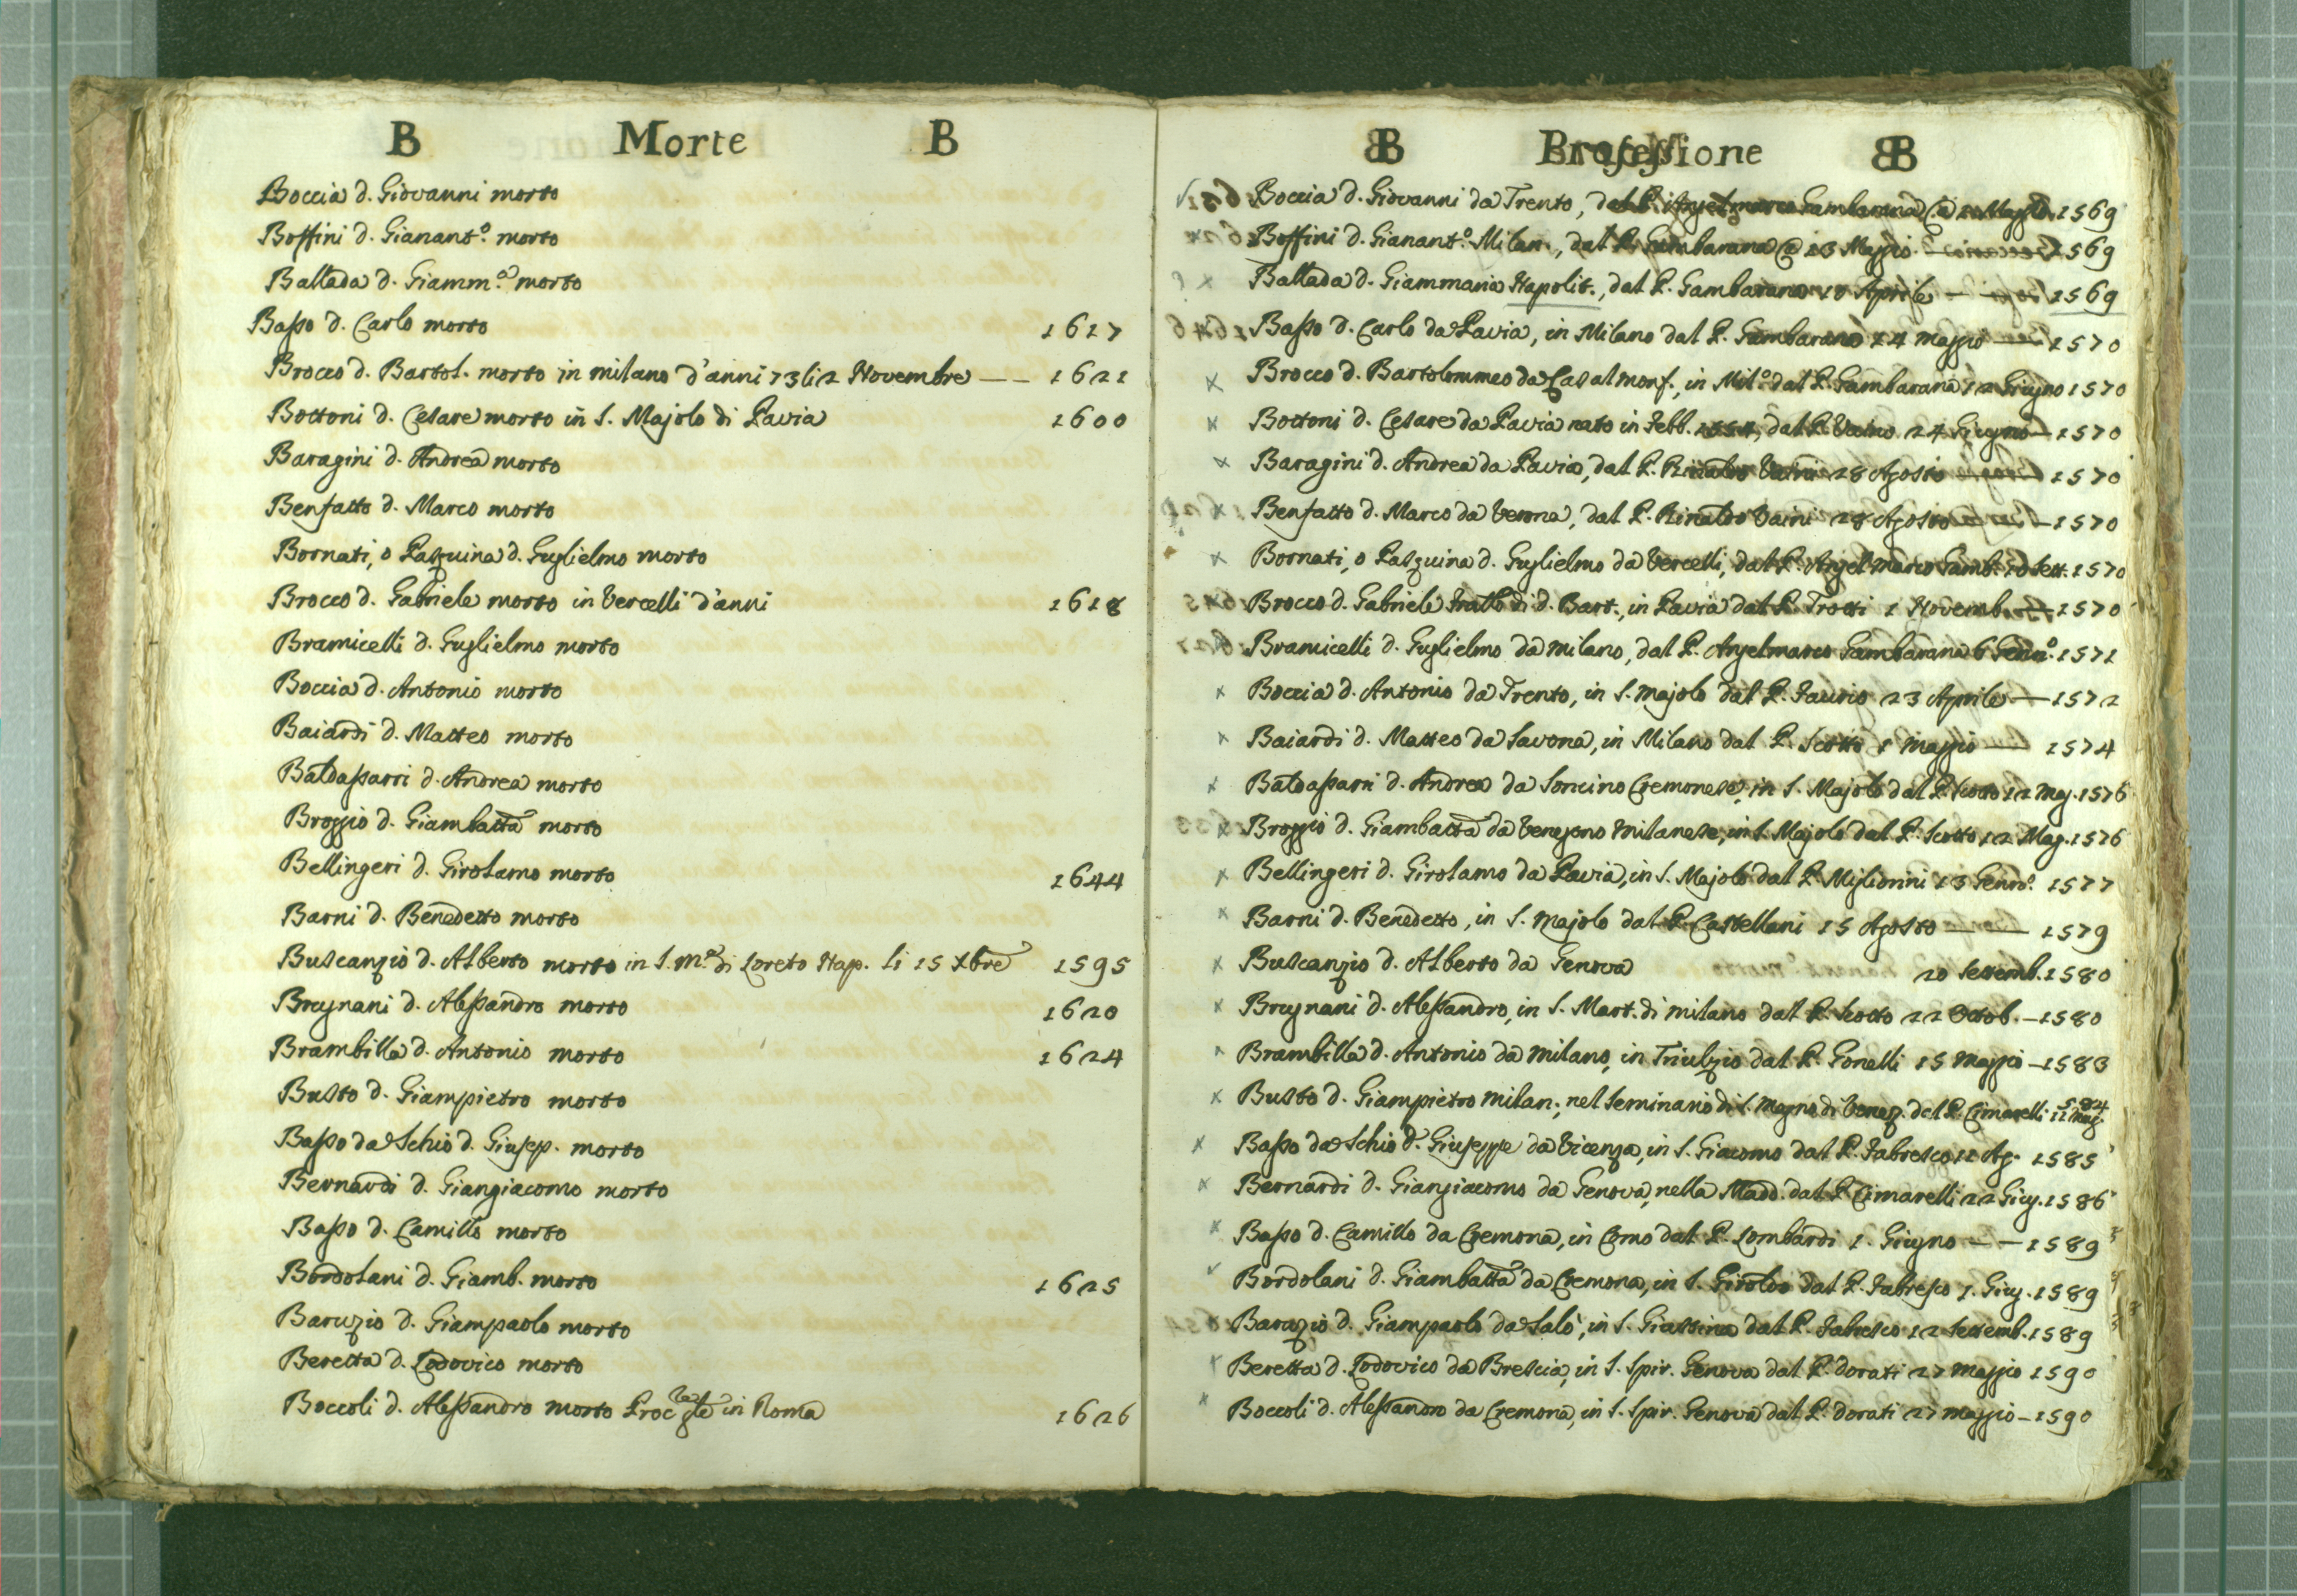 B Morte B
Boccia d. Giovanni morto
Boffini d. Gianant.º morto
Ballada d. Giamm.ª morto
Basso d. Carlo morto 1617
Brocco d. Bartol. morto in milano d'anni 73 li 2 Novembre —— 1621
Bottoni d. Cesare morto in S. Majolo di Pavia 1600
Baragini d. Andrea morto
Benfatto d. Marco morto
Bornati, o Pasquina d. Guglielmo morto
Brocco d. Gabriele morto in Vercelli d'anni 1618
Bramicelli d. Guglielmo morto
Boccia d. Antonio morto
Baiardi d. Matteo morto
Baldassarri d. Andrea morto
Broggio d. Giambatta morto
Bellingeri d. Girolamo morto 1644
Barni d. Benedetto morto
Buscanzio d. Alberto morto in S. M.ª di Loreto Nap. li 15 Xbre 1595
Brugnani d. Alessandro morto 1620
Brambilla d. Antonio morto 1624
Busto d. Giampietro morto
Basso da Schio d. Giusep. morto
Bernardi d. Giangiacomo morto
Basso d. Camillo morto
Bordolani d. Giamb. morto 1625
Baruzio d. Giampaolo morto
Beretta d. Lodovico morto
Boccoli d. Alessandro morto in Roma 1626
B Professione B
Boccia d. Giovanni da Trento, dal P. Angelmarco Gambarana 1569
Boffini d. Gianant.º Milan., dal P. Gambarana @ 13 Maggio 1569
Ballada d. Giammaria Napolit., dal P. Gambarana 10 Aprile — 1569
Basso d. Carlo da Pavia, in Milano dal P. Gambarana 14 maggio — 1570
Brocco d. Bartolommeo da Casalmonf., in Mil.º dal P. Gambarana 12 Giugno 1570
Bottoni d. Cesare da Pavia nato in Febb. 1554, dal P. Vaino 24 Giugno — 1570
Baragini d. Andrea da Pavia, dal P. Rinaldo Vaini 28 Agosto — 1570
Benfatto d. Marco da Verona, dal P. Rinaldo Vaini 28 Agosto — 1570
Bornati, o Pasquina d. Guglielmo da Vercelli, dal P. Angel Marco Gamb. Sett. 1570
Brocco d. Gabriele fratllo di d. Bart., in Pavia dal P. Trotti 1 Novemb. — 1570
Bramicelli d. Guglielmo da milano, dal P. Angelmarco Gambarana 6 Genn.º 1571
Boccia d. Antonio da Trento, in S. majolo dal P. Faurio 23 Aprile — 1572
Baiardi d. Matteo da Savona, in Milano dal P. Scotto 1 maggio — 1574
Baldassarri d. Andrea da Soncino Cremonese, in S. Majolo dal P. Scotto 12 Mag. 1576
Broggio d. Giambatta da Venegono Milanese, in S. Majolo dal P. Scotto 12 Mag. 1576
Bellingeri d. Girolamo da Pavia, in S. Majolo dal P. Migliorini 13 Genn.º 1577
Barni d. Benedetto, in S. majolo dal P. Castellani 15 Agosto — 1579
Buscanzio d. Alberto da Genova 20 Settemb. 1580
Brugnani d. Alessandro, in S. Mart. di milano dal P. Scotto 22 Ottob. — 1580
Brambilla d. Antonio da milano, in Triulzio dal P. Gonelli 15 Maggio — 1583
Busto d. Giampietro milan., nel Seminario di S. Magno di Venez. dal P. Cimarelli 12 Mag. 1584
Basso da Schio d. Giuseppe da Vicenza, in S. Giacomo dal P. Fabresco 12 Ag. 1585
Bernardi d. Giangiacomo da Genova, nella Madd. dal P. Cimarelli 22 Giug. 1586
Basso d. Camillo da Cremona, in Como dal P. Lombardi 1. Giugno — — 1589
Bordolani d. Giambatta da Cremona, in S. Giroldo dal P. Fabresco 1. Giug. 1589
Baruzio d. Giampaolo da Salò, in S. Giustina dal P. Fabresco 12 Settemb. 1589
Beretta d. Lodovico da Brescia, in S. Spir. Genova dal P. Dorati 27 maggio 1590
Boccoli d. Alessandro da Cremona, in S. Spir. Genova dal P. Dorati 27 maggio — 1590